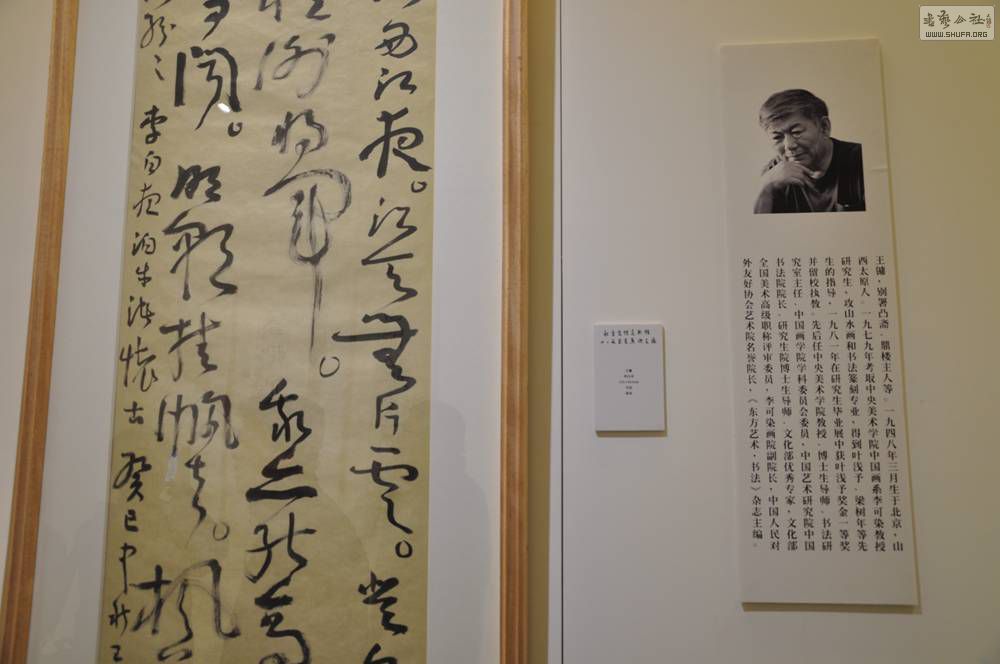 西江夜。江天無片雲。登
謝将軍。余亦能高
闻。明朝挂帆去。楓
紛〻 李白夜泊牛渚懷古 癸巳中秋王
王镛,别署凸斋、鼎楼主人等。一九四八年三月生于北京,山
西太原人。一九七九年考取中央美术学院中国画系李可染教授
研究生,攻山水画和书法篆刻专业,得到叶浅予、梁树年等先
生的指导,一九八一年在研究生毕业展中获叶浅予奖金一等奖
并留校执教。先后任中央美术学院教授、博士生导师、书法研
究室主任、中国画学院学科委员会委员,中国艺术研究院中国
书法院院长、研究生院博士生导师,文化部优秀专家,文化部
全国美术高级职称评审委员,李可染画院副院长,中国人民对
外友好协会艺术院名誉院长,《东方艺术·书法》杂志主编。
书艺公社
WWW.SHUFA.ORG